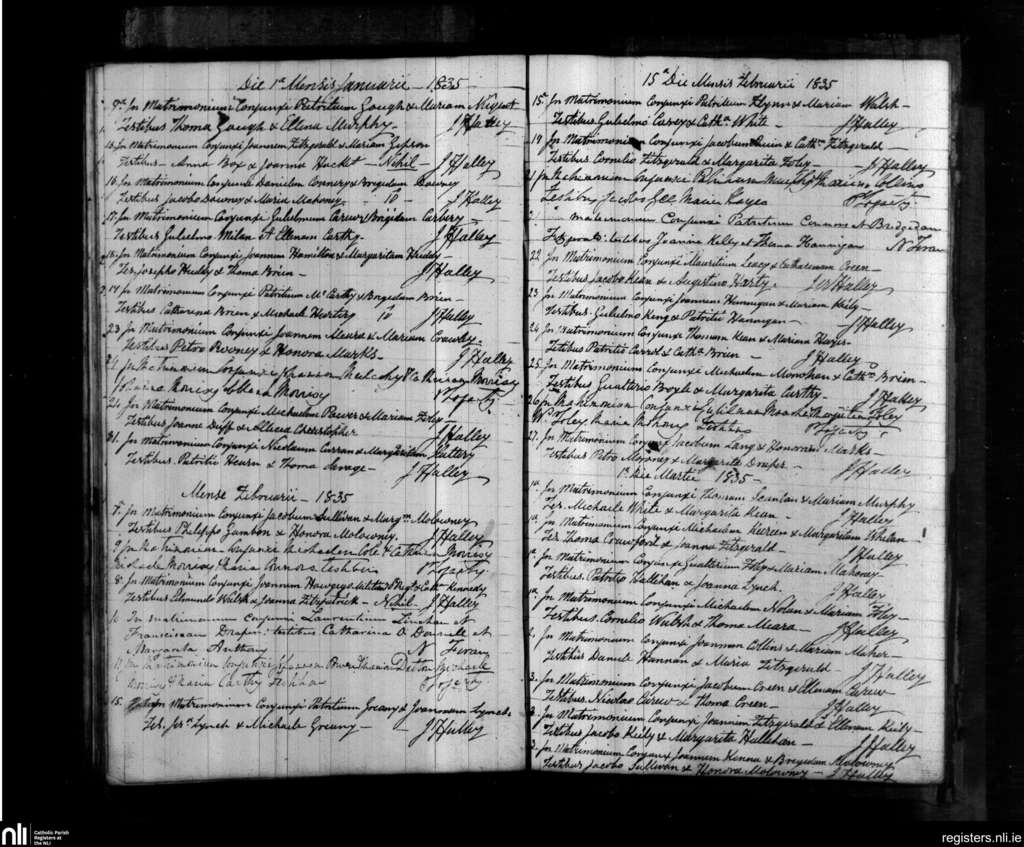 Die 1a Mensis Januarii - 1835
9a In Matrimonium Conjunxi Patritium Gough & Mariam Nugent
Testibus Thoma Gough & Ellena Murphy - J Halley
In Matrimonium Conjunxi Joannem Fitzgerald & Mariam
Testibus - Anna Box & Joanna Hacket - Nihil - J Halley
16. In Matrimonium Conjunxi Danielem Connery & Bregidam Downey
Testibus Jacobo Downey & Maria Mahoney - J Halley
17. In Matrimonium Conjunxi Gulielmum Carew & Brigidam Carbery
Testibus Gulielmo Milan et Ellenam Carthy - J Halley
In Matrimonium Conjunxi Joannem Hamilton & Margaritam
Tes. Josepho & Thoma Brien - J Halley
In Matrimonium Conjunxi Patritium McCarthy & Bregedam Brien -
Testibus Catharena Brien & Michaele J Halley
23 In Matrimonium Conjunxi Joannem Meara & Mariam Crawley -
Testibus Petro & Honora Marks - J Halley
Morrissy
Maria Morrissy Fogarty
In Matrimonium Conjunxi Michaelem Power & Mariam Foley -
Testibus Joanne Duff & Alicia Christopher J Halley
31. In Matrimonium Conjunxi Nicolaum Curran & Margaritam Slattery
Testibus Patritio Hearn & Thoma Savage - J Halley
Mense Februarii - 1835
7. In Matrimonium Conjunxi Jacobum Sullivan & Margm Molowney -
Testibus Philippo Gambon & Honora Molowney. J Halley
9 In Matrimonium Conjunxi Michaelem Cole & Morrissy
Michaele Morrissy Maria Connors Testibus Fogarty
8. In Matrimonium Conjunxi Joannem & Cath Kennedy
Testibus Edmundo Walsh & Joanna Fitzpatrick - Nihil - J Halley
10 In matrimonium Conjunxi Laurentium Linehan et
Draper: testibus Catharina O Donnell et
Margarita Anthony N Foran
In Matrimonium Conjunxi
& Maria Carthy Testibus Fogarty
15. In Matrimonium Conjunxi Patritium Greany & Joannam Lynch.
Tes. Lynch & Michaele Greany - J Halley
15a Die Mensis Februarii 1835
15. In Matrimonium Conjunxi Patritium Flynn & Mariam Walsh -
Testibus Gulielmo Casey & Catha White - J Halley
19 In Matrimonium Conjunxi Jacobum & Catha Fitzgerald -
Testibus Cornelio Fitzgerald & Margarita Foley - J Halley
21 In Matrimonium Conjunxi Collins
Testibus Jacobo Gee Maria Hayes Fogarty
21 matrimonium Conjunxi Patritium Connors & Bridgedam
Fitzgerald: testibus Joanna Kelly et Thoma Hannigan N Foran
22 In Matrimonium Conjunxi Mauritium Leacy & Catharenam Creen -
Testibus Jacobo Kean & Augustino Harty. J Halley
23 In Matrimonium Conjunxi Joannem Hannigan & Mariam Kiely -
Testibus Gulielmo Keng & Patritii Hannigan - J Halley
24 In Matrimonium Conjunxi Thomam Kean & Mariam Hayes -
Testibus Patritio Carrol & Catha Brien - J Halley
25. In Matrimonium Conjunxi Michaelem Monohan & Catha Brien -
Testibus Gualterio Boyle & Margarita Carthy - J Halley
26 In Matrimonium Conjunxi Foley
Foley Maria Anthony Testibus Fogarty
27. In Matrimonium Conjunxi Jacobum Lang & Honoram Marks -
Testibus Petro Moroney & Margarita Draper - J Halley
1a Die Martii 1835 -
1a. In Matrimonium Conjunxi Thomam Scanlan & Mariam Murphy
Tes. Michaele White & Margarita Kean - J Halley
1a. In Matrimonium Conjunxi Michaelem & Margaritam Whelan
Tes Thoma Crawford & Joanna Fitzgerald - J Halley
1a. In Matrimonium Conjunxi Gualterium Foley & Mariam Mahoney -
Testibus. Patritio Hallihan & Joanna Lynch. J Halley
1a. In Matrimonium Conjunxi Michaelem Nolan & Mariam Foley -
Testibus. Cornelio Walsh & Thoma Meara - J Halley
In Matrimonium Conjunxi Joannem Collins & Mariam Maher
Testibus Daniele Hannan & Maria Fitzgerald J Halley
3. In Matrimonium Conjunxi Jacobum Creen & Ellenam Carew -
Testibus Nicolao Carew & Thoma Creen - J Halley
3. In Matrimonium Conjunxi Joannem Fitzgerald & Ellenam Kiely -
Testibus Jacobo Kiely & Margarita Hallihan - J Halley
3. In Matrimonium Conjunxi Joannem Kenna & Bregedam Molowney
Testibus Jacobo Sullivan & Honora Molowney - J Halley
nli Catholic Parish
Registers at
the NLI
registers.nli.ie